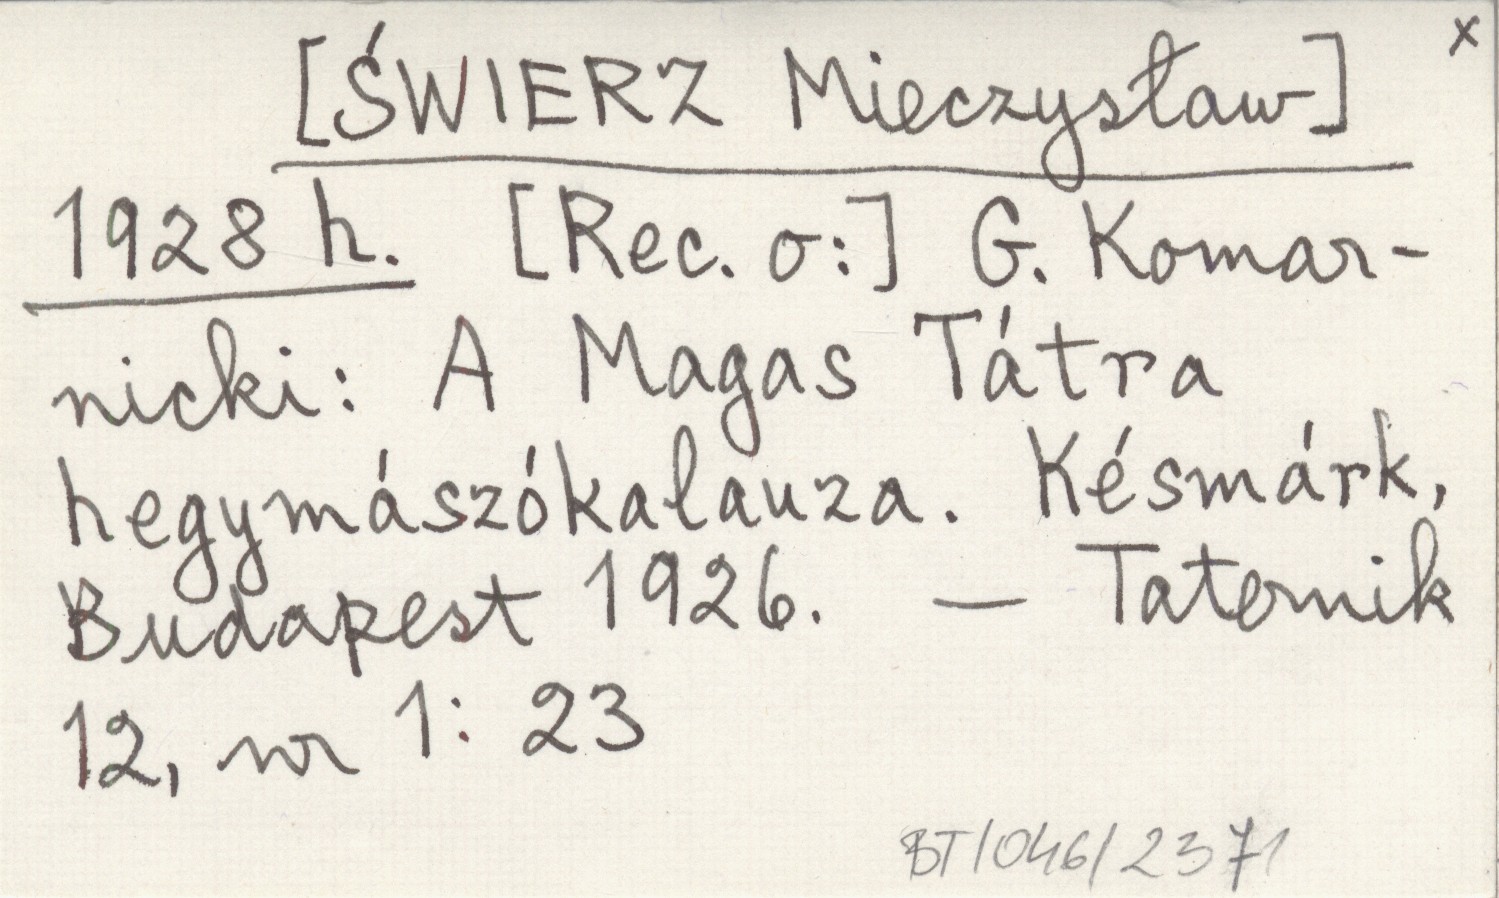 x
[ŚWIERZ Mieczysław]
1928 h. [Rec. o:] G. Komar-
nicki: A Magas Tátra
hegymászókalauza. Késmárk,
Budapest 1926. — Taternik
12, nr 1: 23
BT/046/2371